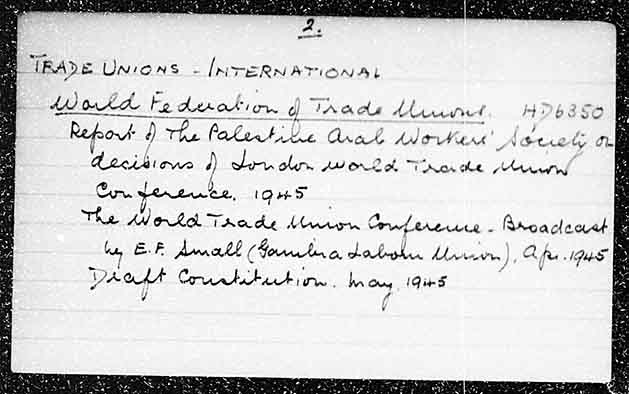 2.
TRADE UNIONS - INTERNATIONAL
World Federation of Trade Unions. HD6350
Report of The Palestine Arab Workers' Society on
decisions of London World Trade Union
Conference. 1945
The World Trade Union Conference - Broadcast
by E.F. Small (Gambia Labour Union), Ap. 1945
Draft Constitution. May, 1945